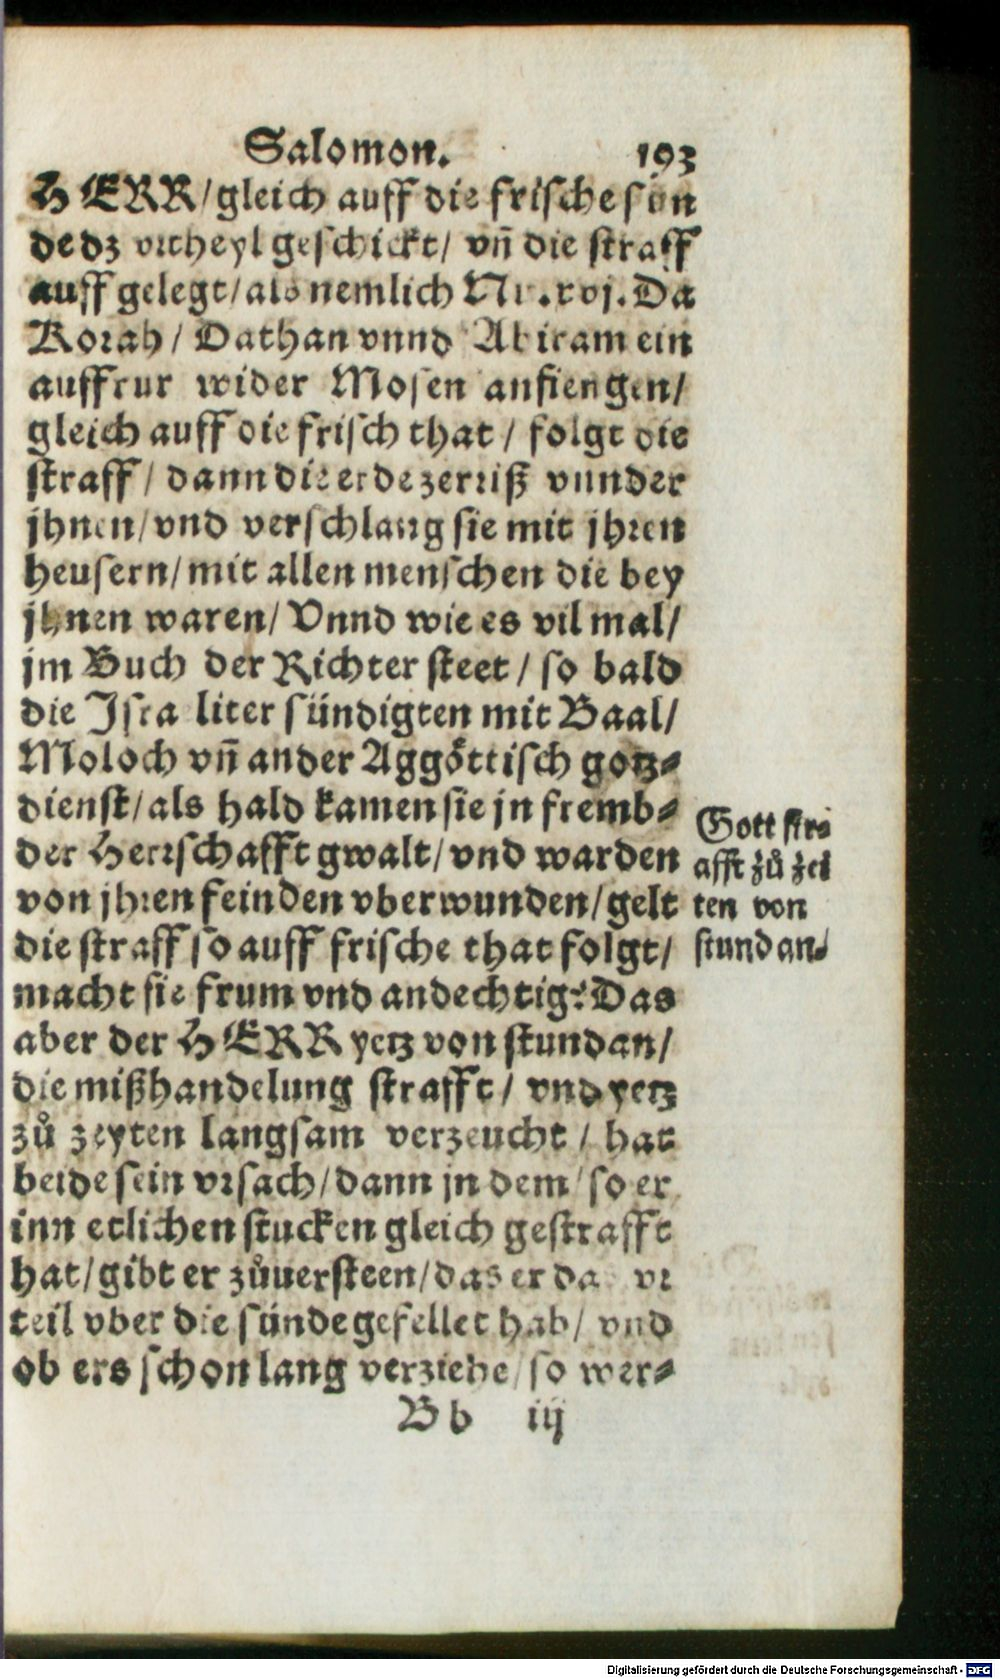 Salomon. 193
HERR / gleich auff die frische sün
de dz vrtheyl geschickt / vñ die straff
auff gelegt / als nemlich Nu. xvj. Da
Korah / Dathan vnnd Abiram ein
auffrur wider Mosen anfiengen /
gleich auff die frisch that / folgt die
straff / dann die erde zerriß vnnder
jhnen / vnd verschlang sie mit jhren
heusern / mit allen menschen die bey
jhnen waren / Vnnd wie es vil mal /
jm Buch der Richter steet / so bald
die Isra liter sündigten mit Baal /
Moloch vñ ander Aggöttisch gotz-
dienst / als bald kamen sie jn fremb-
der Herrschafft gwalt / vnd warden
von jhren feinden vberwunden / gelt
die straff so auff frische that folgt /
macht sie frum vnd andechtig: Das
aber der HERR yetz von stund an /
die mißhandelung strafft / vnd yetz
zů zeyten langsam verzeucht / hat
beide sein vrsach / dann jn dem / so er
inn etlichen stucken gleich gestrafft
hat / gibt er zůuersteen / das er das vr
teil vber die sünde gefellet hab / vnd
ob ers schon lang verziehe / so wer-
Bb iij
Gott stra
afft zů zei
ten von
stund an.
Digitalisierung gefördert durch die Deutsche Forschungsgemeinschaft - DFG